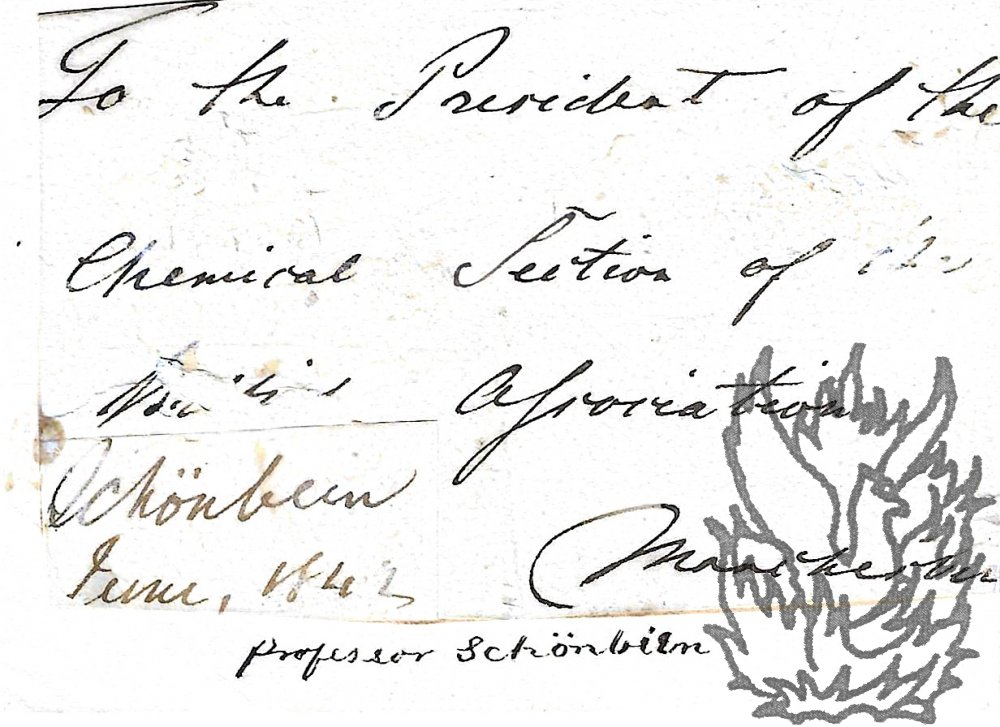 To the President of the
Chemical Section of the
British Association
Schönbein
June, 1842
Manchester
Professor Schönbein